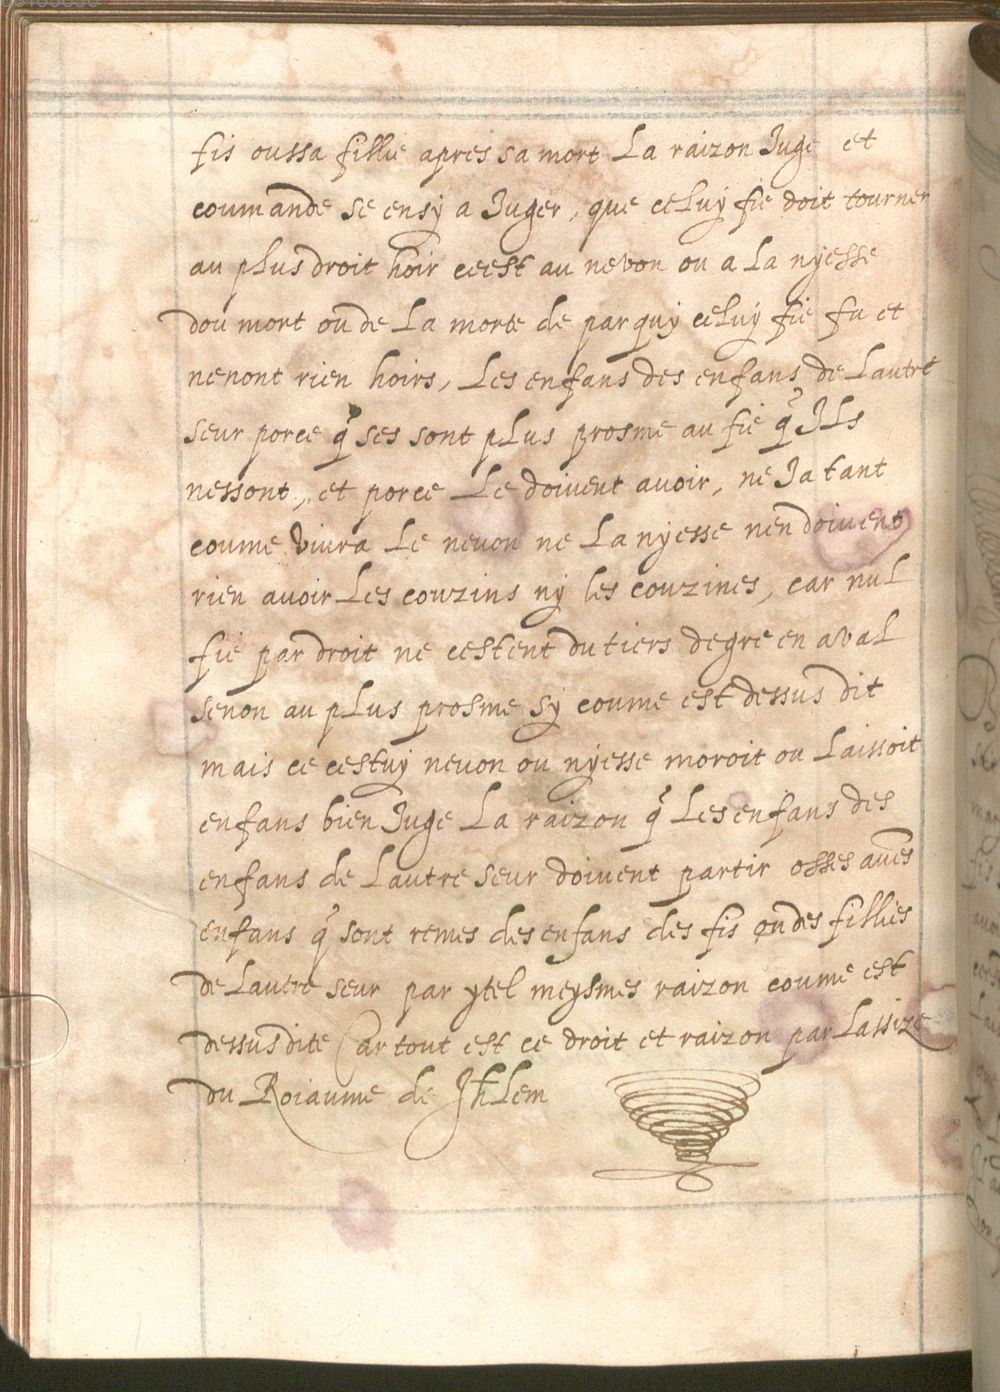 fis oussa fillie apres sa mort La raizon Juge et
coumande se ensy a Juger, que celuy fie doit tourner
au plus droit hoir ceest au nevon ou a la nyesse
dou mort ou de La morte de par quy celuy fie fu et
nenont rien hoirs, Les enfans des enfans de Lautre
seur porce q̃ ses sont plus prosme au fie q̃ Ils
nessont, et porce Le doivent avoir, ne Ja tant
coume vivra Le nevon ne La nyesse nen doivent
rien avoir Les couzins ny les couzines, car nul
fie par droit ne cestent du tiers degre en aval
senon au plus prosme sy coume est dessus dit
mais ce cestuy nevon ou nyesse moroit ou Laissoit
enfans bien Juge La raizon q̃ Les enfans des
enfans de Lautre seur doivent partir osses aves
enfans q̃ sont remes des enfans des fis ou des fillies
de Lautre seur par ytel meysmes raizon coume est
dessus dite Car tout est ce droit et raizon par Lassize
du Roiaume de Jhlem